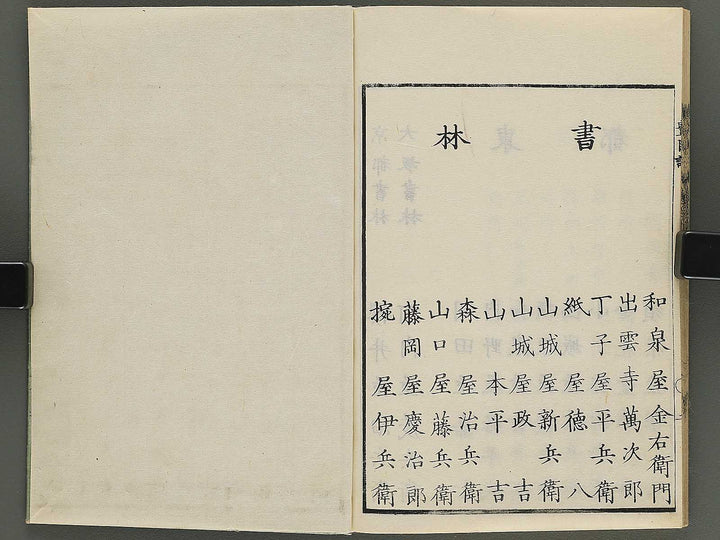 書林
和泉屋金右衛門
出雲寺萬次郎
丁子屋平兵衛
紙屋徳八
山城屋新兵衛
山城屋政吉
山本平吉
森屋治兵衛
山口屋藤兵衛
藤岡屋慶治郎
捥屋伊兵衛